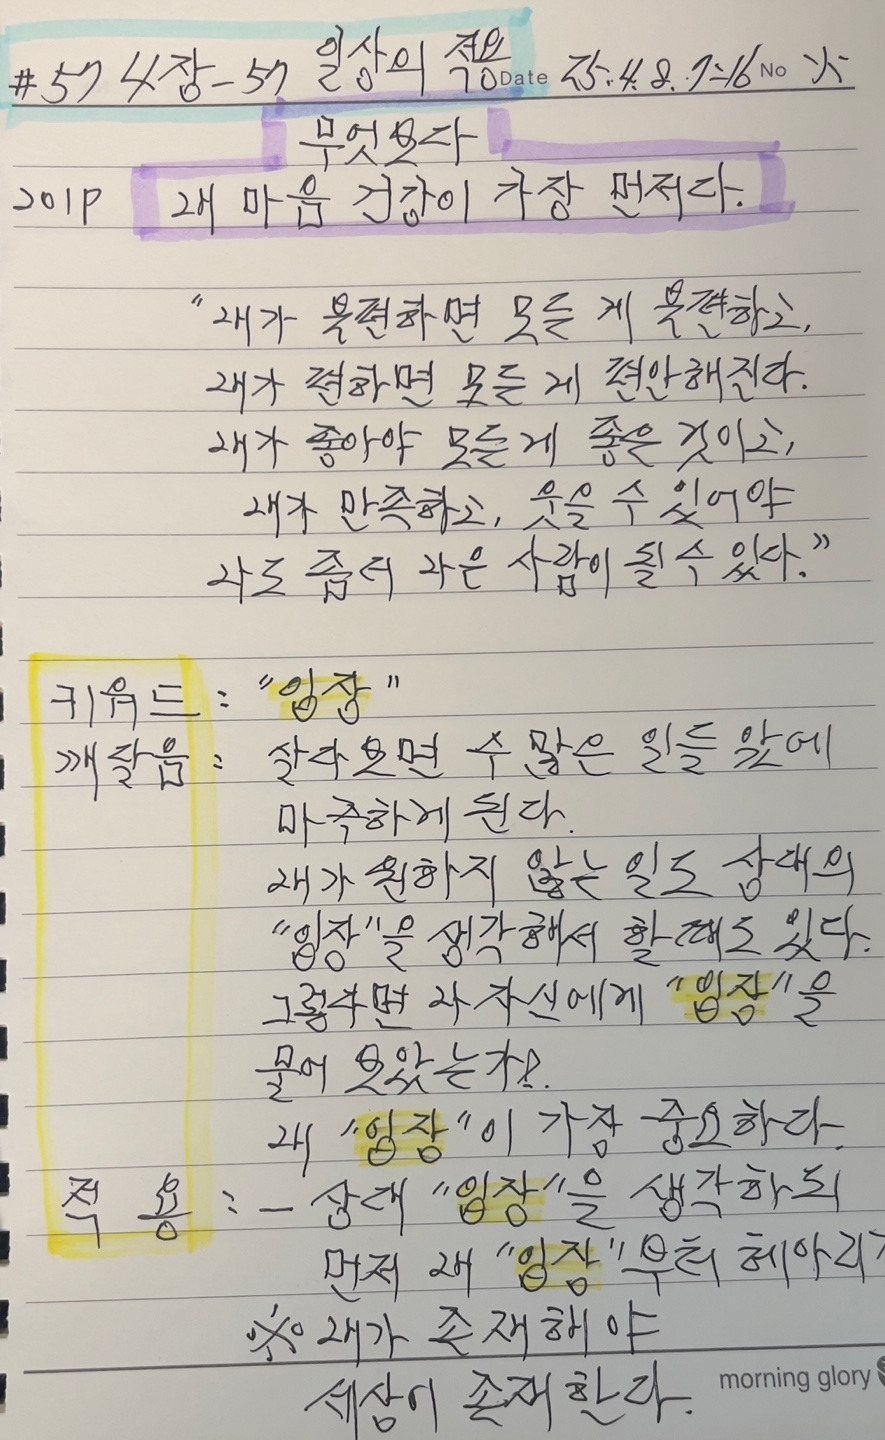 #57 4장-57 일상의 적요 70 Date 25.4.8.7:16 No 火
무엇보다
201P 내 마음 건강이 가장 먼저다.
"내가 불편하면 모든 게 불편하고,
내가 편하면 모든 게 편안해진다.
내가 좋아야 모든 게 좋은 것이고,
내가 만족하고, 웃을 수 있어야
나도 좀 더 나은 사람이 될 수 있다."
키워드 : "입장"
깨달음 : 살다보면 수 많은 일들 앞에
마주하게 된다.
내가 원하지 않는 일도 상대의
"입장"을 생각해서 할 때도 있다.
그렇다면 나 자신에게 "입장"을
물어 보았는가?.
내 "입장"이 가장 중요하다.
적 용 : - 상대 "입장"을 생각하되
먼저 내 "입장"부터 헤아리기
※ 내가 존재해야
세상이 존재한다.
morning glory